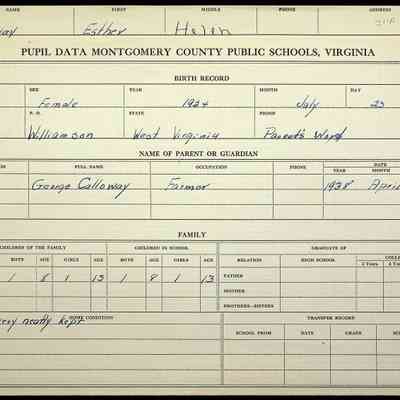 NAME FIRST MIDDLE PHONE ADDRESS
Esther Helen
PUPIL DATA MONTGOMERY COUNTY PUBLIC SCHOOLS, VIRGINIA
BIRTH RECORD
SEX YEAR MONTH DAY
Female 1924 July 23
P. O. STATE PROOF
Williamson West Virginia Parent's Word
NAME OF PARENT OR GUARDIAN
FULL NAME OCCUPATION PHONE DATE
YEAR MONTH
George Calloway Farmer 1938 April
FAMILY
CHILDREN OF THE FAMILY CHILDREN IN SCHOOL GRADUATE OF
BOYS AGE GIRLS AGE BOYS AGE GIRLS AGE RELATION HIGH SCHOOL COLL
2 Years 4 Yea
1 8 1 13 1 8 1 13 FATHER
MOTHER
BROTHERS—SISTERS
HOME CONDITION TRANSFER RECORD
very neatly kept
SCHOOL FROM DATE GRADE SC